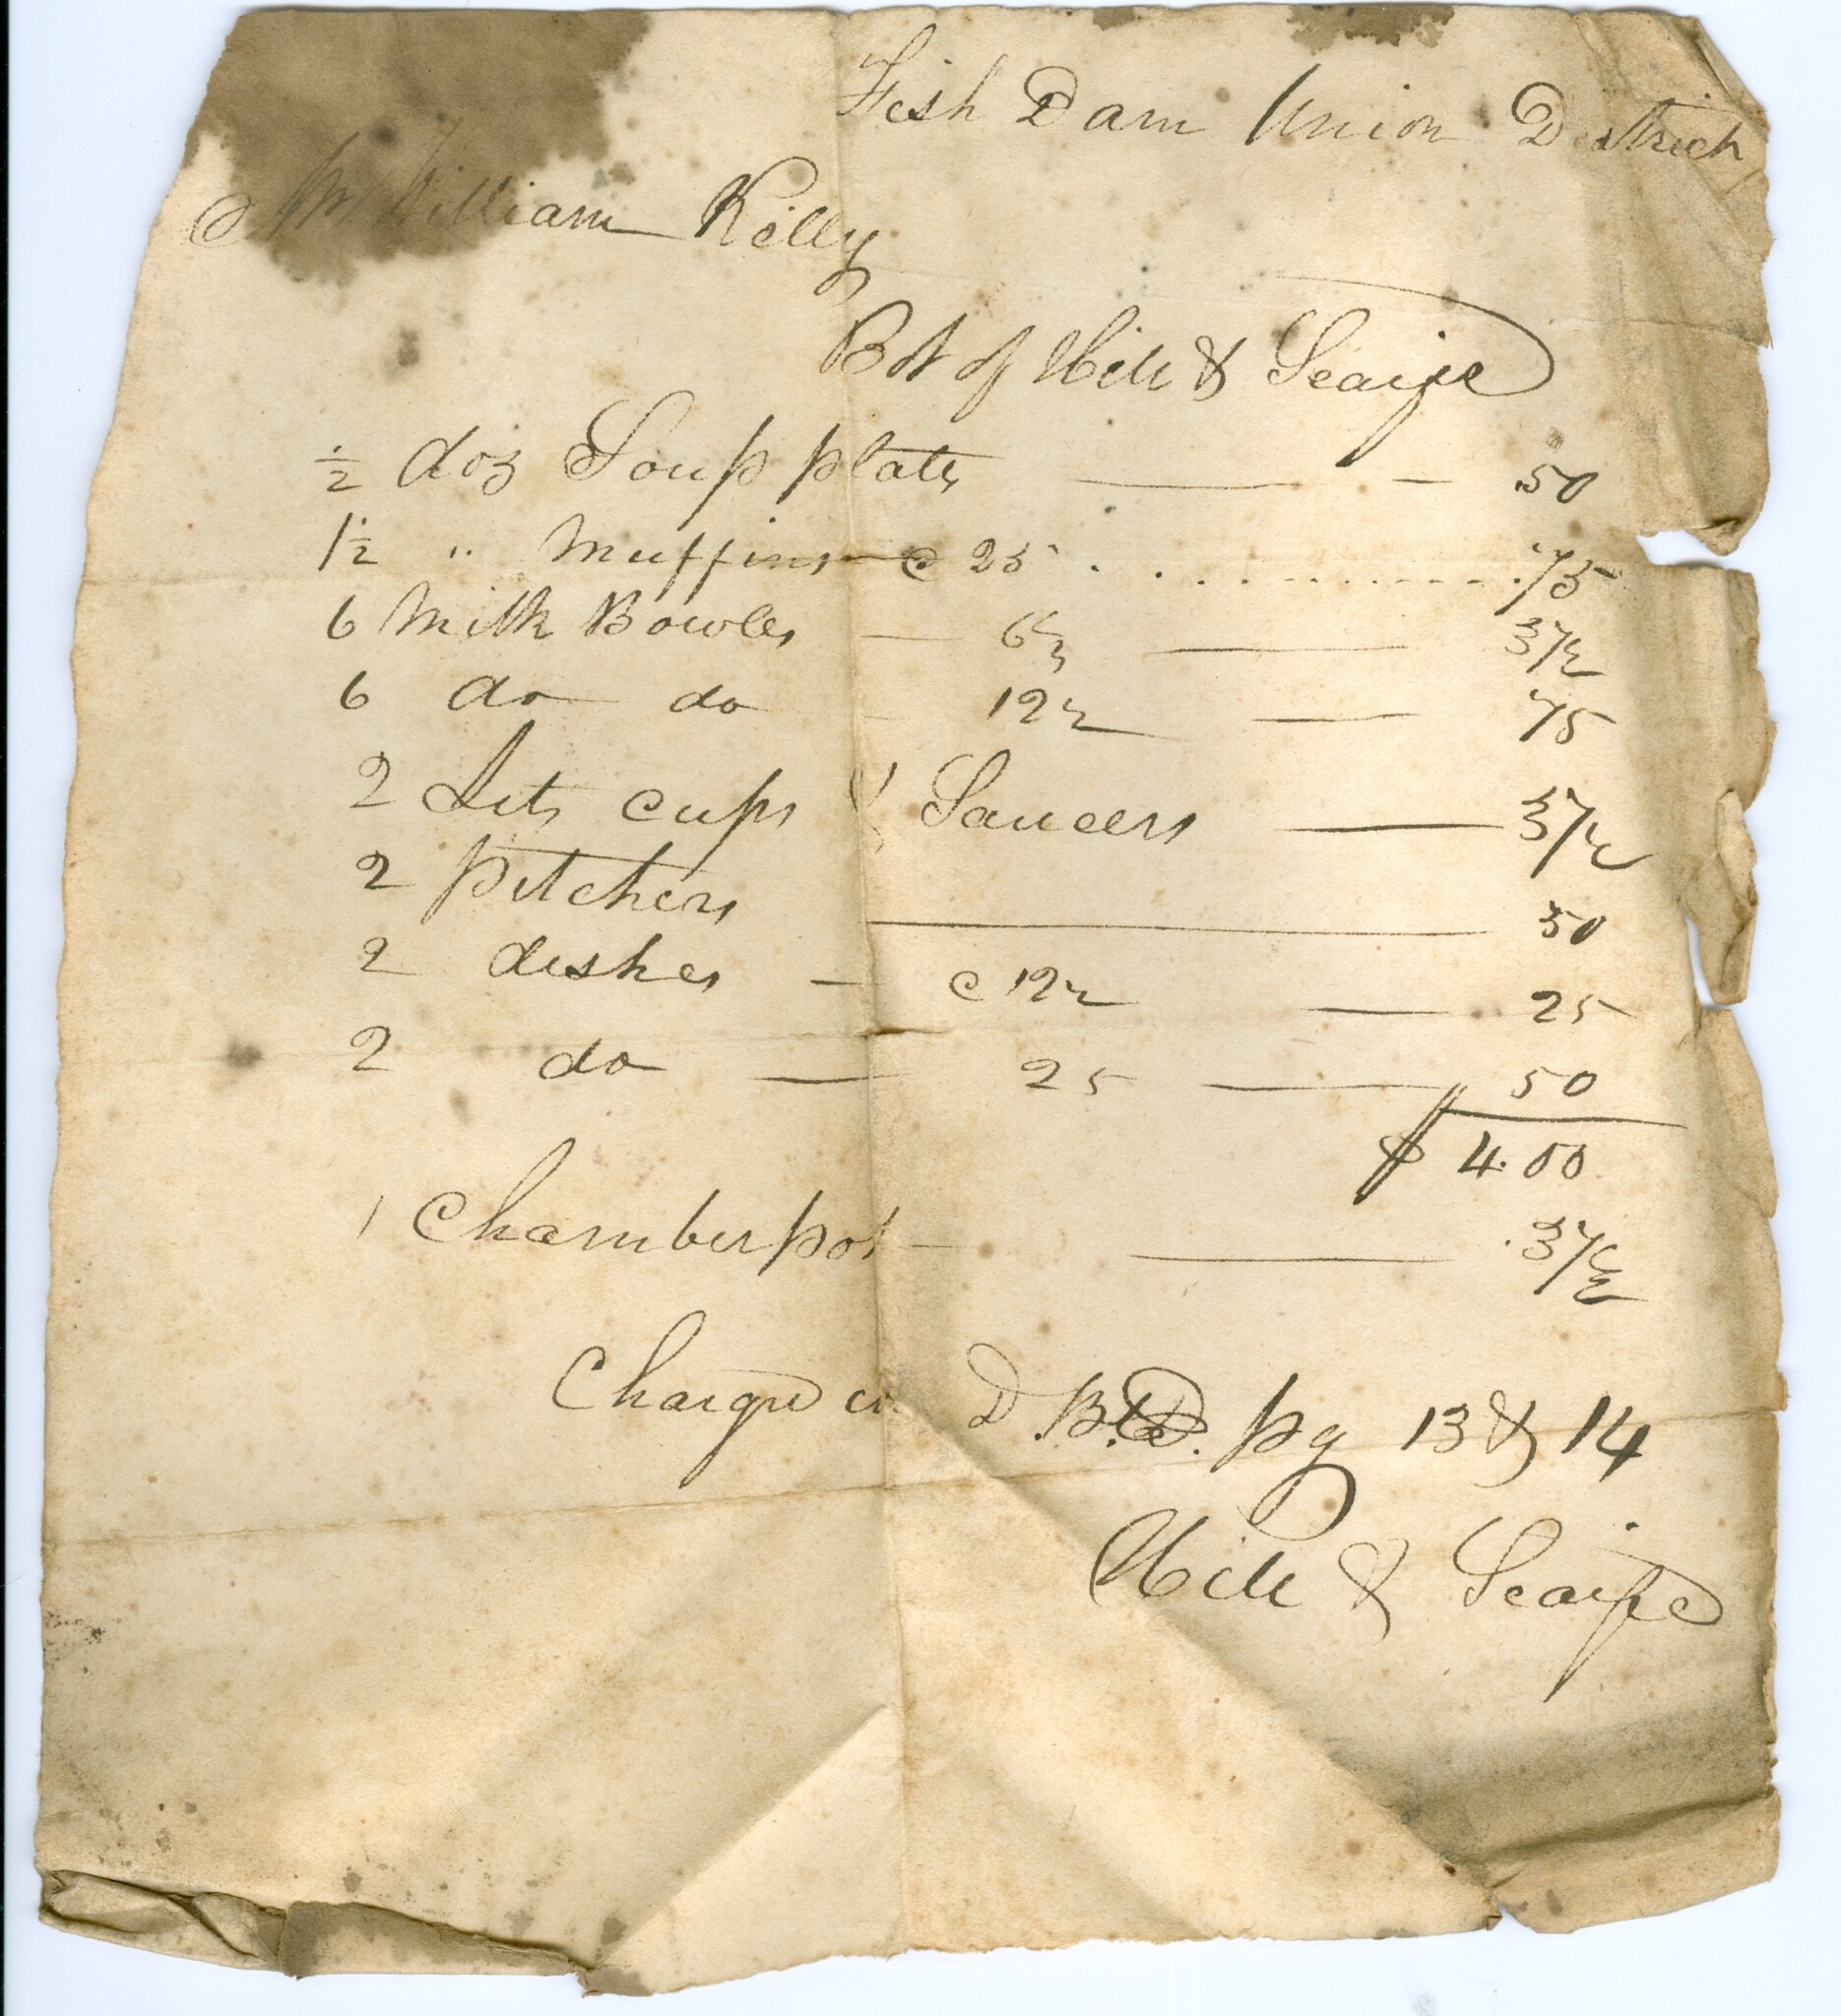 Fish Dam Union District
Mr William Kelly
Bot of Hill & Scaife
1/2 doz Soup plates .50
1 1/2 " Muffins @ 25 .75
6 Milk Bowles 6 1/4 37 1/2
6 do do 12 1/2 75
2 Sets cups & Saucers 37 1/2
2 pitchers 50
2 dishes @ 12 1/2 25
2 do 25 50
$ 4.00
1 Chamberpot .37 1/2
Charged in D.B. pg 13 & 14
Hill & Scaife